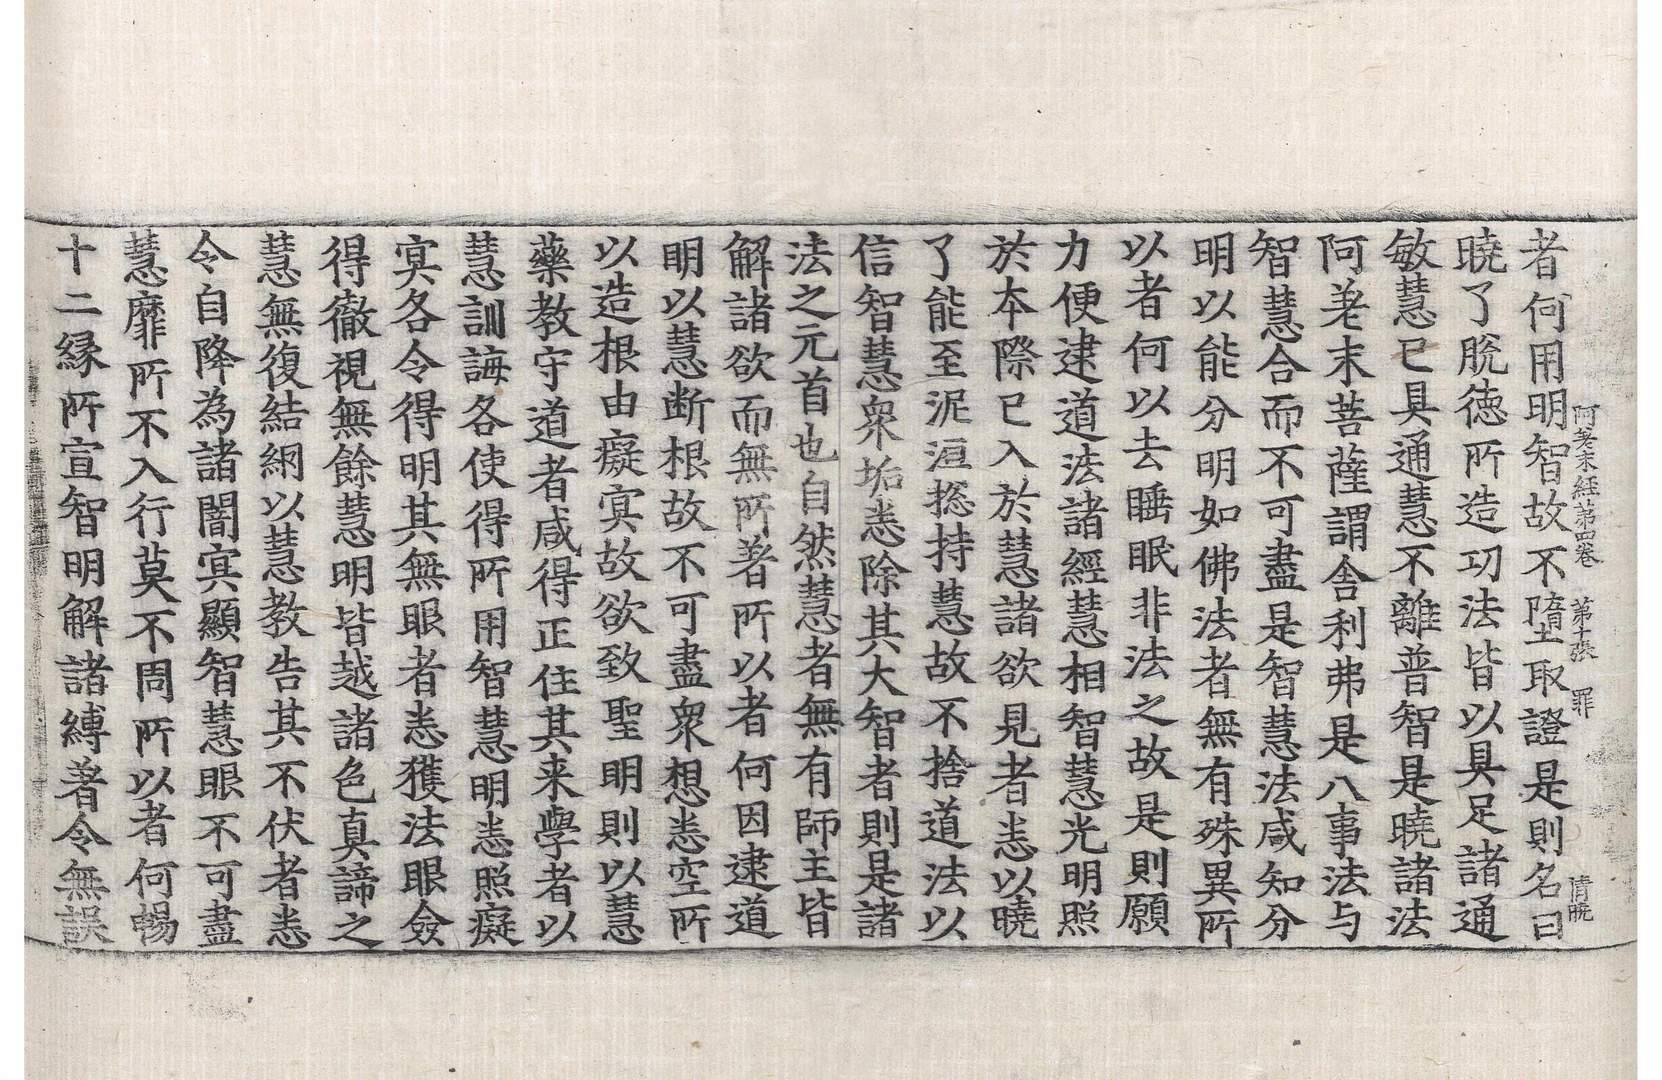 阿差末経第四卷　第十張　罪　清曉
者何用明智故不墮取證是則名曰
曉了脫德所造功法皆以具足諸通
敏慧已具通慧不離普智是曉諸法
阿差末菩薩謂舍利弗是八事法与
智慧合而不可盡是智慧法咸知分
明以能分明如佛法者無有殊異所
以者何以去睡眠非法之故是則願
力便逮道法諸經慧相智慧光明照
於本際已入於慧諸欲見者悉以曉
了能至泥洹摠持慧故不捨道法以
信智慧衆垢悉除其大智者則是諸
法之元首也自然慧者無有師主皆
解諸欲而無所著所以者何因逮道
明以慧断根故不可盡衆想悉空所
以造根由癡冥故欲致聖明則以慧
藥教守道者咸得正住其来學者以
慧訓誨各使得所用智慧明悉照癡
冥各令得明其無眼者悉獲法眼僉
得徹視無餘慧明皆越諸色真諦之
慧無復結網以慧教告其不伏者悉
令自降為諸闇冥顯智慧眼不可盡
慧靡所不入行莫不周所以者何暢
十二緣所宣智明解諸縛著令無誤